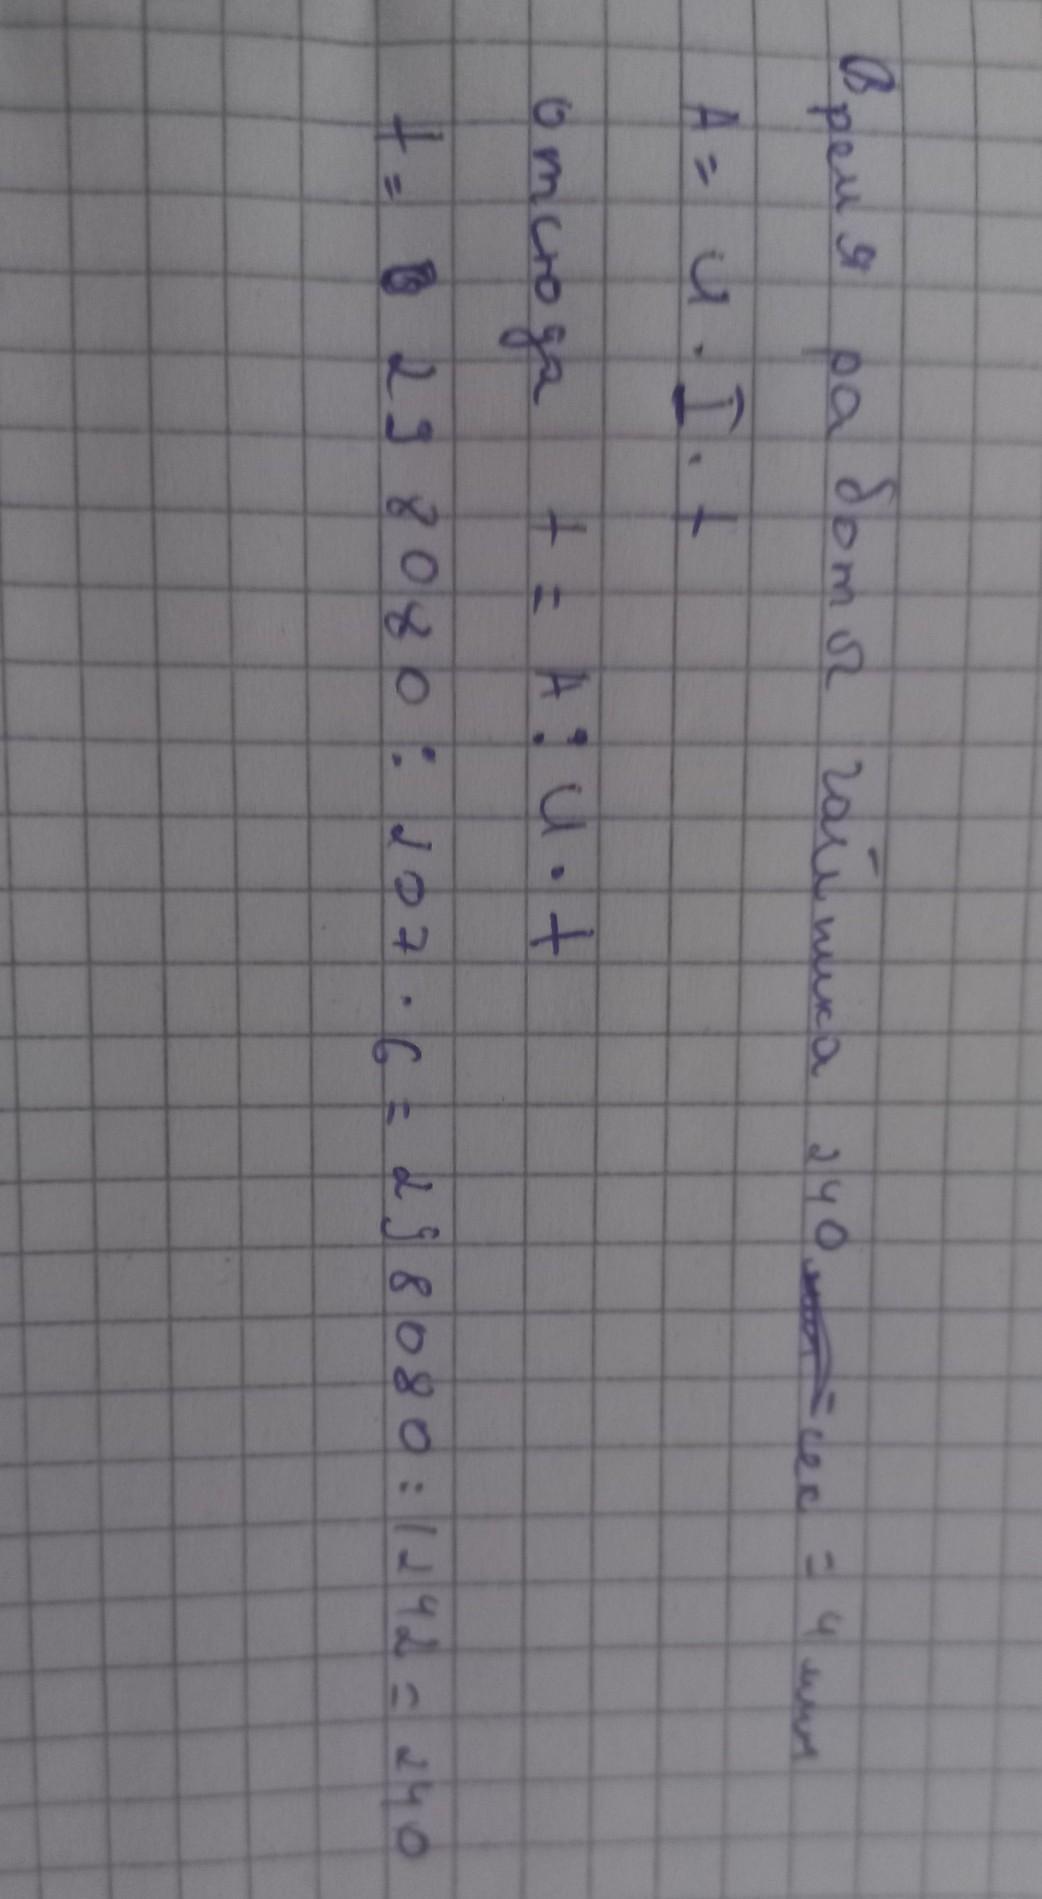 Время работы чайника 240 сек = 4 мин
A = U · I · t
отсюда t = A : U · t
t = 298080 : 207 · 6 = 298080 : 1242 = 240